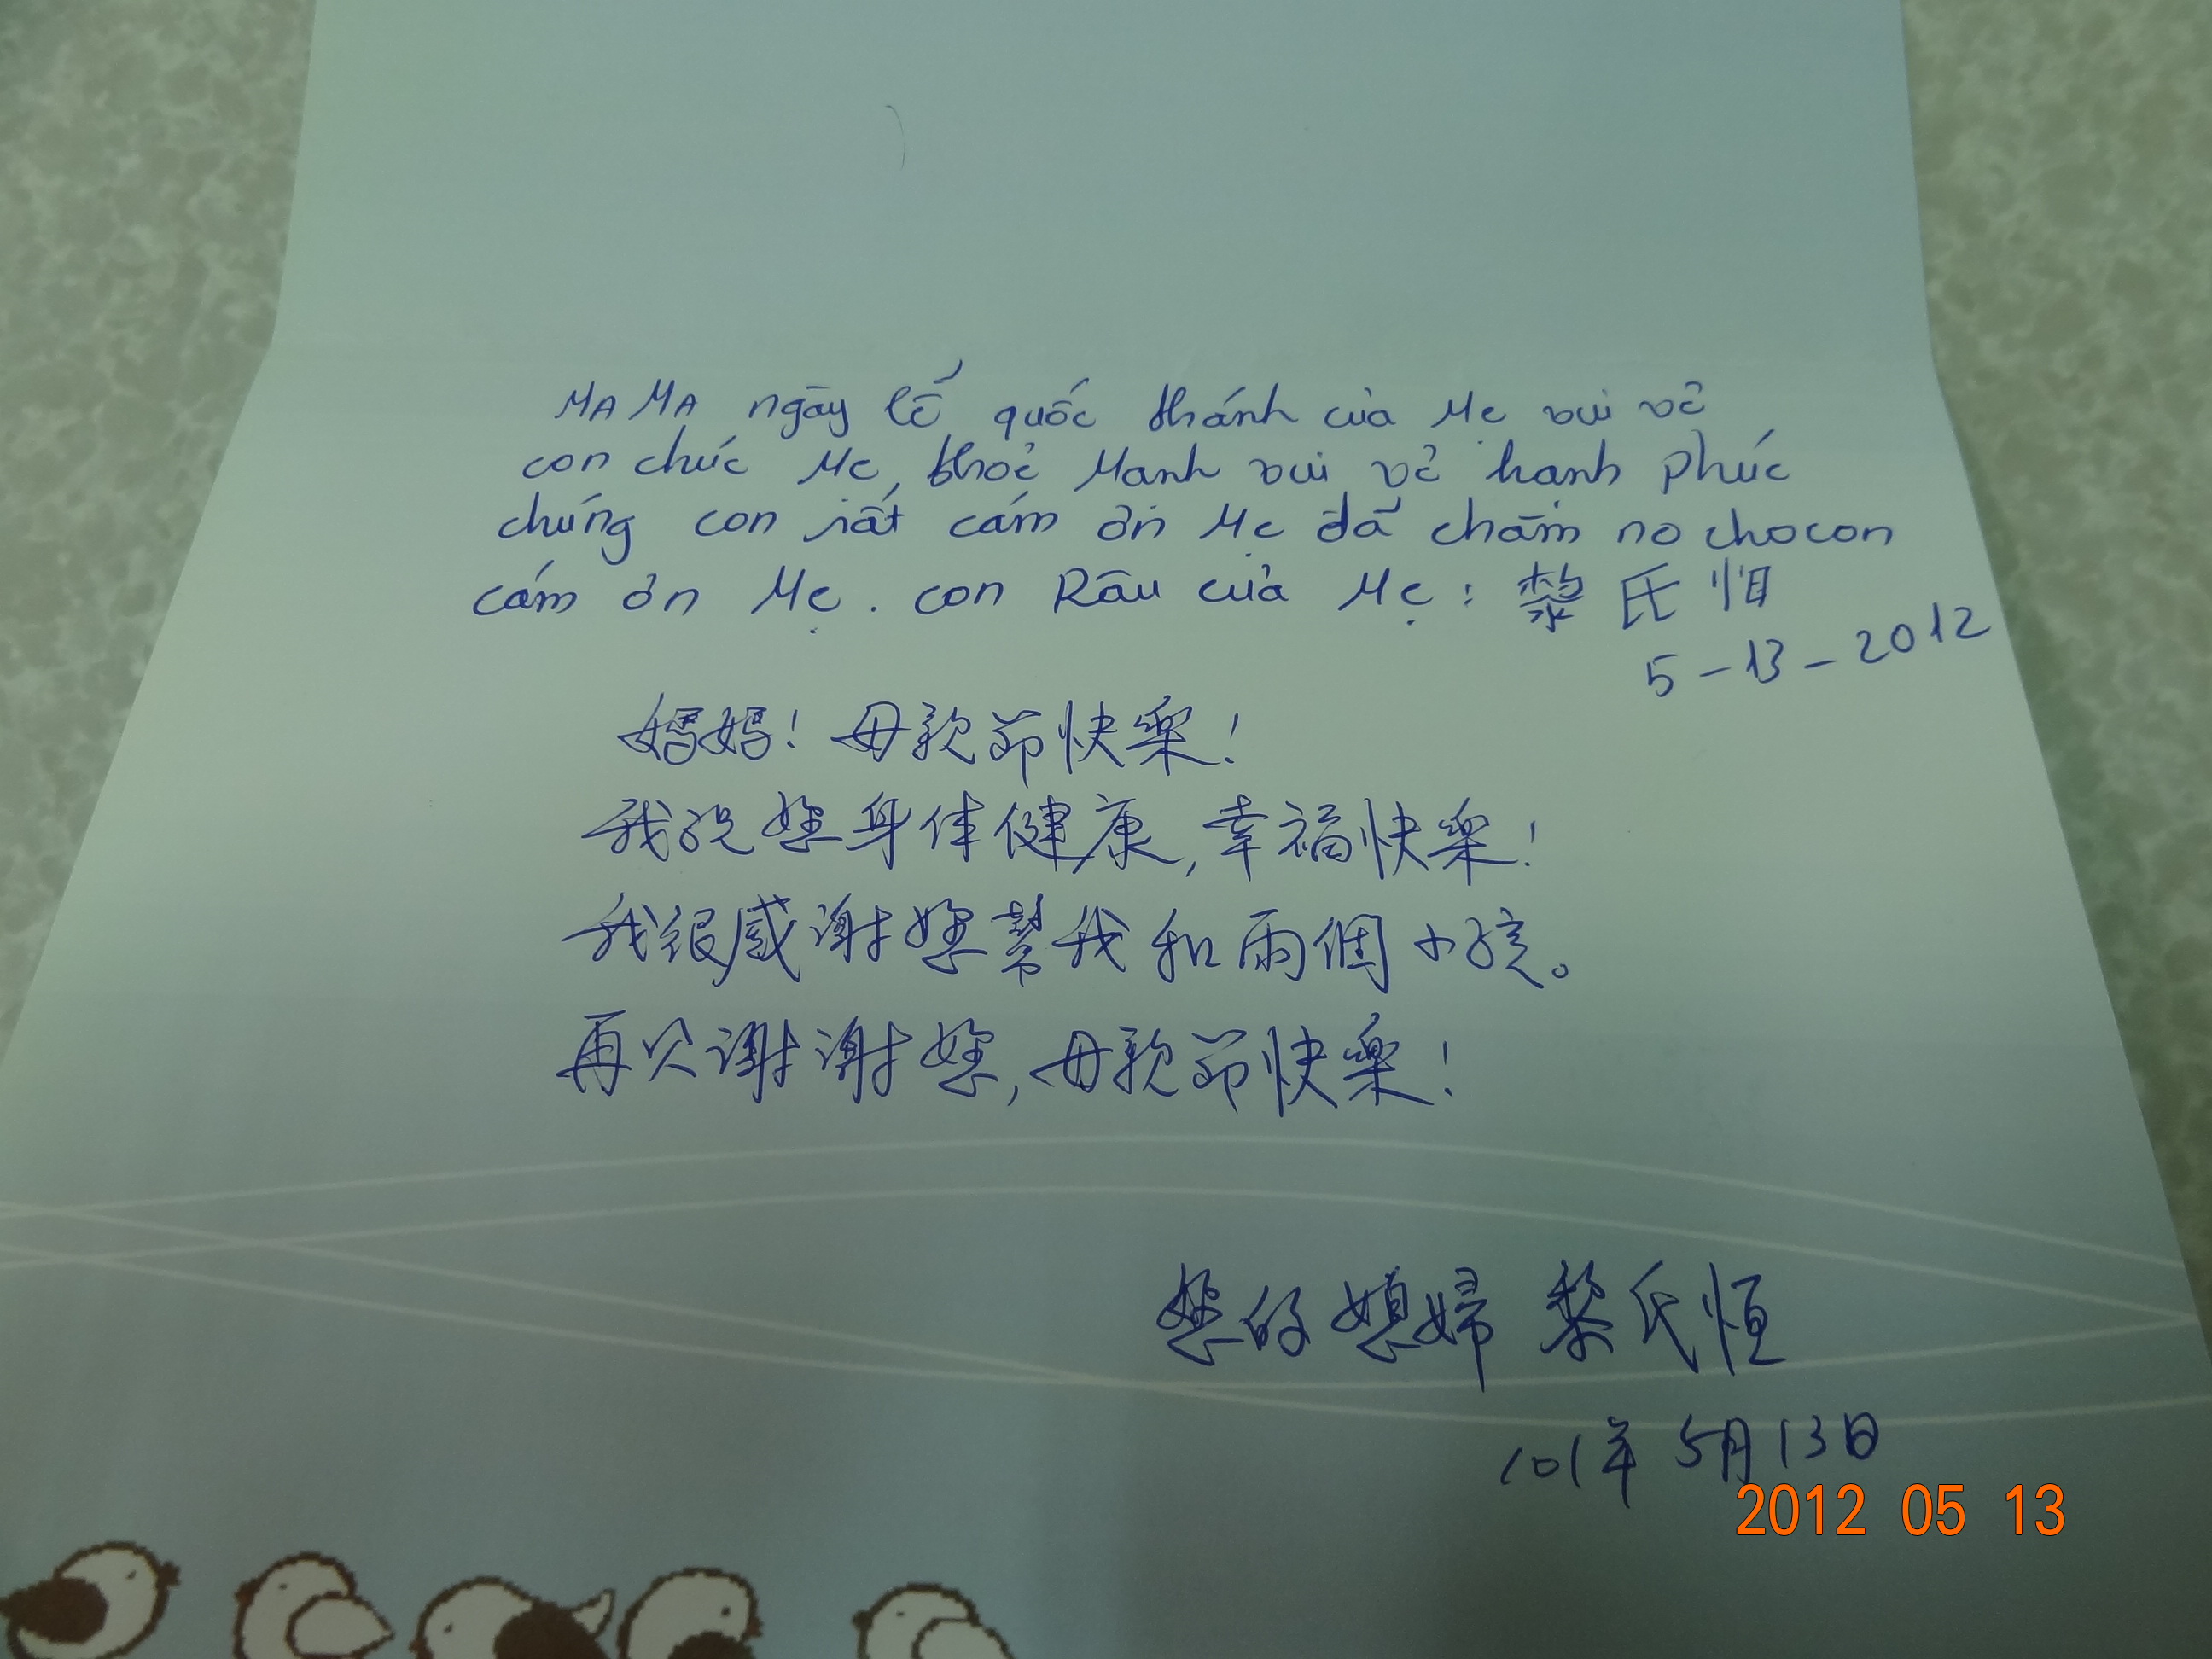 MA MA ngày lễ quốc thánh của Mẹ vui vẻ
con chúc Mẹ khoẻ Mạnh vui vẻ hạnh phúc
chúng con rất cám ơn Mẹ đã chăm no cho con
cám ơn Mẹ. con Râu của Mẹ: 黎氏恒
5-13-2012
媽媽！母親節快樂！
我祝您身体健康,幸福快樂！
我很感謝您幫我和兩個小孩。
再次謝謝您,母親節快樂！
您的媳婦 黎氏恒
101年5月13日
2012 05 13